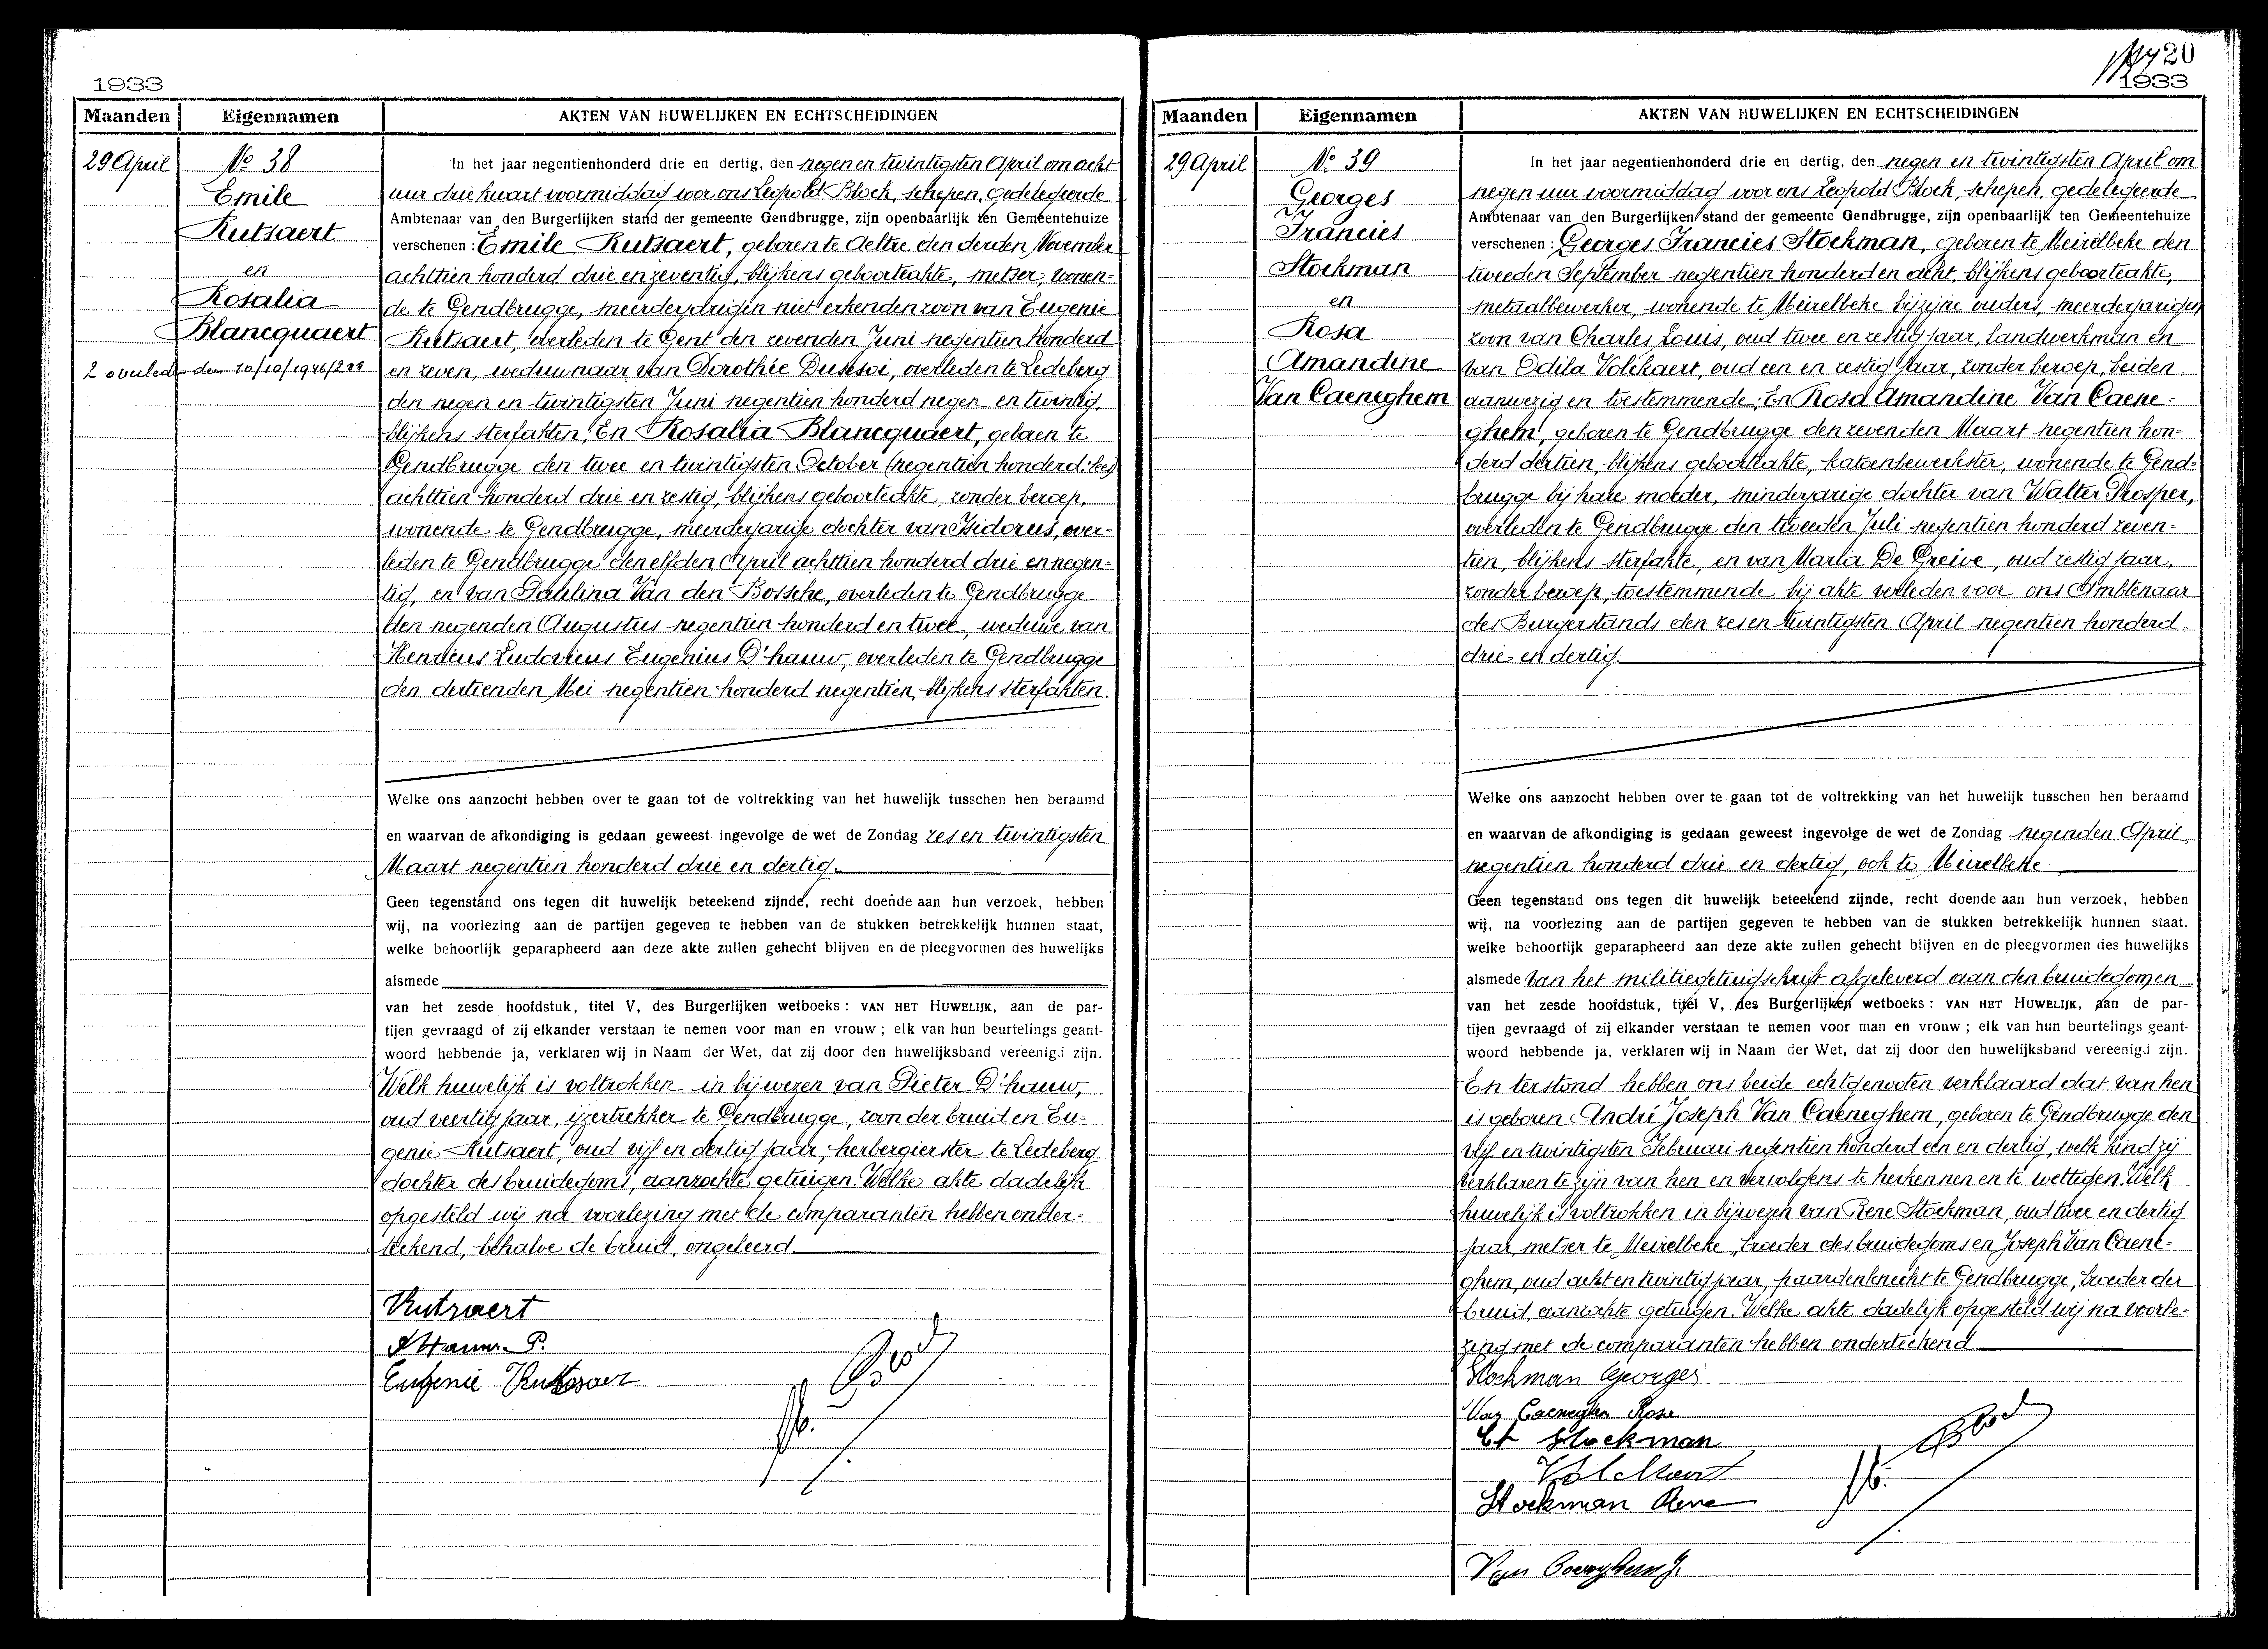 1933
Maanden Eigennamen AKTEN VAN HUWELIJKEN EN ECHTSCHEIDINGEN
29 April
No 38
Emile
Rutsaert
en
Rosalia
Blancquaert
2 overleden den 10/10/1946/
In het jaar negentienhonderd drie en dertig, den negen en twintigsten April om acht
uur drie kwart voormiddag voor ons Leopold Block, schepen, gedelegeerde
Ambtenaar van den Burgerlijken stand der gemeente Gendbrugge, zijn openbaarlijk ten Gemeentehuize
verschenen : Emile Rutsaert, geboren te Aeltre den derden November
achttien honderd drie en zeventig, blijkens geboorteakte, metser, wonen-
de te Gendbrugge, meerderjarigen niet erkenden zoon van Eugenie
Rutsaert, overleden te Gent den zevenden Juni negentien honderd
en zeven, weduwnaar van Dorothée overleden te Ledeberg
den negen en twintigsten Juni negentien honderd negen en twintig,
blijkens sterfakten, En Rosalia Blancquaert, geboren te
Gendbrugge den twee en twintigsten October (negentien honderd:
achttien honderd drie en zestig, blijkens geboorteakte, zonder beroep,
wonende te Gendbrugge, meerderjarige dochter van Isidorus, over-
leden te Gendbrugge den elfden April achttien honderd drie en negen-
tig, en van Paulina Van den Bossche, overleden te Gendbrugge
den negenden Augustus negentien honderd en twee, weduwe van
Henricus Ludovicus Eugenius D'hauw, overleden te Gendbrugge
den dertienden Mei negentien honderd negentien, blijkens sterfakten.
Welke ons aanzocht hebben over te gaan tot de voltrekking van het huwelijk tusschen hen beraamd
en waarvan de afkondiging is gedaan geweest ingevolge de wet de Zondag zes en twintigsten
Maart negentien honderd drie en dertig.
Geen tegenstand ons tegen dit huwelijk beteekend zijnde, recht doende aan hun verzoek, hebben
wij, na voorlezing aan de partijen gegeven te hebben van de stukken betrekkelijk hunnen staat,
welke behoorlijk geparapheerd aan deze akte zullen gehecht blijven en de pleegvormen des huwelijks
alsmede
van het zesde hoofdstuk, titel V, des Burgerlijken wetboeks : VAN HET HUWELIJK, aan de par-
tijen gevraagd of zij elkander verstaan te nemen voor man en vrouw ; elk van hun beurtelings geant-
woord hebbende ja, verklaren wij in Naam der Wet, dat zij door den huwelijksband vereenigd zijn.
Welk huwelijk is voltrokken in bijwezen van Pieter D'hauw,
oud veertig jaar, ijzertrekker te Gendbrugge, zoon der bruid en Eu-
genie Rutsaert, oud vijf en dertig jaar, herbergierster te Ledeberg
dochter des bruidegoms, aanzochte getuigen. Welke akte dadelijk
opgesteld wij na voorlezing met de comparanten hebben onder-
teekend, behalve de bruid, ongeleerd
Rutsaert
D'Hauw P.
Eugenie Rutsaer
Block
1933
20
Maanden Eigennamen AKTEN VAN HUWELIJKEN EN ECHTSCHEIDINGEN
29 April
No 39
Georges
Francies
Stockman
en
Rosa
Amandine
Van Caeneghem
In het jaar negentienhonderd drie en dertig, den negen en twintigsten April om
negen uur voormiddag voor ons Leopold Block, schepen, gedelegeerde
Ambtenaar van den Burgerlijken stand der gemeente Gendbrugge, zijn openbaarlijk ten Gemeentehuize
verschenen : Georges Francies Stockman, geboren te Meirelbeke den
tweeden September negentien honderd en acht, blijkens geboorteakte,
metaalbewerker, wonende te Meirelbeke bij zijne ouders, meerderjarigen
zoon van Charles Louis, oud twee en zestig jaar, landwerkman en
van Odila Volckaert, oud een en zestig jaar, zonder beroep, beiden
aanwezig en toestemmende; En Rosa Amandine Van Caene-
ghem, geboren te Gendbrugge den zevenden Maart negentien hon-
derd dertien, blijkens geboorteakte, katoenbewerkster, wonende te Gend-
brugge bij hare moeder, minderjarige dochter van Walter Prosper,
overleden te Gendbrugge den tweeden Juli negentien honderd zeven-
tien, blijkens sterfakte, en van Maria De Greive, oud zestig jaar,
zonder beroep, toestemmende bij akte verleden voor ons Ambtenaar
des Burgerstands den zes en twintigsten April negentien honderd
drie en dertig.
Welke ons aanzocht hebben over te gaan tot de voltrekking van het huwelijk tusschen hen beraamd
en waarvan de afkondiging is gedaan geweest ingevolge de wet de Zondag negenden April
negentien honderd drie en dertig, ook te Meirelbeke
Geen tegenstand ons tegen dit huwelijk beteekend zijnde, recht doende aan hun verzoek, hebben
wij, na voorlezing aan de partijen gegeven te hebben van de stukken betrekkelijk hunnen staat,
welke behoorlijk geparapheerd aan deze akte zullen gehecht blijven en de pleegvormen des huwelijks
alsmede van het militiegetuigschrift afgeleverd aan den bruidegom en
van het zesde hoofdstuk, titel V, des Burgerlijken wetboeks : VAN HET HUWELIJK, aan de par-
tijen gevraagd of zij elkander verstaan te nemen voor man en vrouw ; elk van hun beurtelings geant-
woord hebbende ja, verklaren wij in Naam der Wet, dat zij door den huwelijksband vereenigd zijn.
En terstond hebben ons beide echtgenooten verklaard dat van hen
is geboren André Joseph Van Caeneghem, geboren te Gendbrugge den
vijf en twintigsten Februari negentien honderd een en dertig, welk kind zij
verklaren te zijn van hen en vervolgens te herkennen en te wettigen. Welk
huwelijk is voltrokken in bijwezen van Rene Stockman, oud twee en dertig
jaar, metser te Meirelbeke, broeder des bruidegoms en Joseph Van Caene-
ghem, oud acht en twintig jaar, paardenknecht te Gendbrugge, broeder der
bruid, aanzochte getuigen. Welke akte dadelijk opgesteld wij na voorle-
zing met de comparanten hebben onderteekend
Stockman Georges
Van Caeneghem Rosa
Ch Stockman
Volckaert
Stockman Rene
Block
Van Caeneghem J.